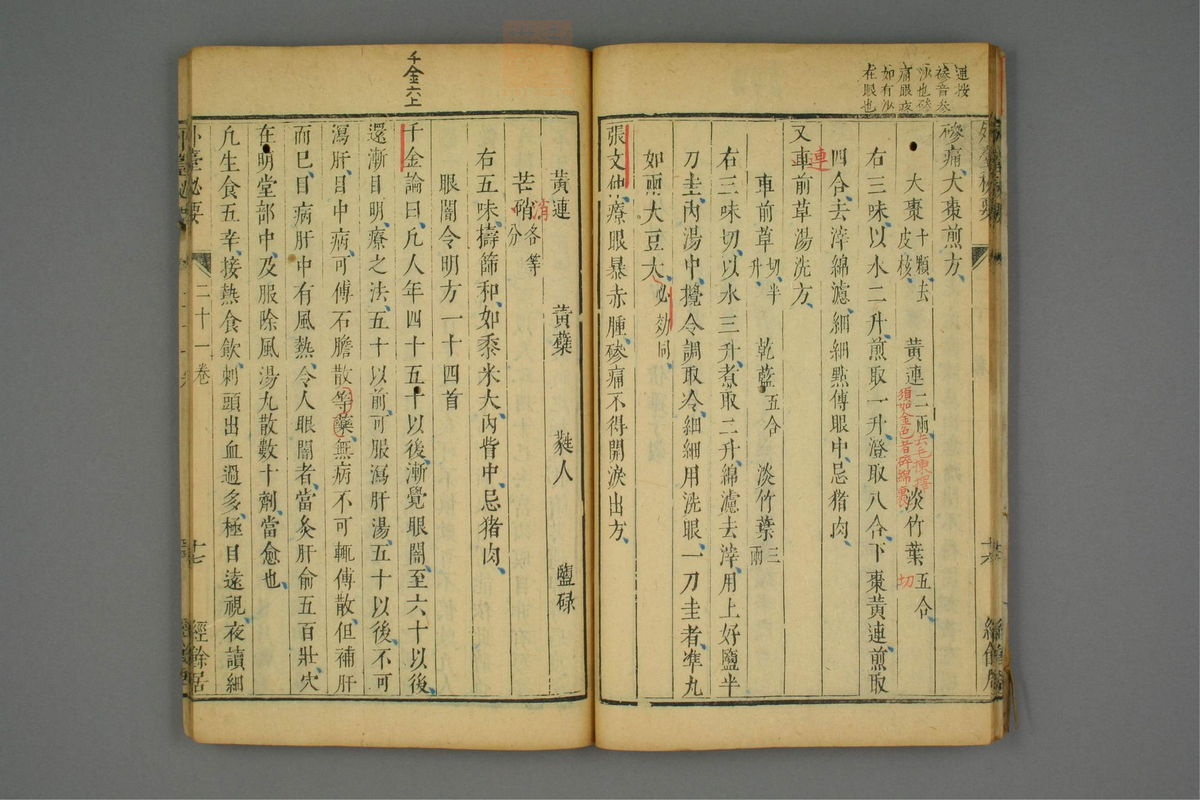 連按
磣音糸
沙也磣
痛眼疼
如有沙
在眼也
磣痛大棗煎方
大棗十顆去皮核 黃連二兩去毛揀擇須如金色者碎綿裹 淡竹葉五合切
右三味以水二升煎取一升澄取八合下棗黃連煎取
四合去滓綿濾細細點傅眼中忌猪肉
又車前草湯洗方
連
車前草切半升 乾藍五合 淡竹葉三兩
右三味切以水三升煮取二升綿濾去滓用上好鹽半
刀圭內湯中攪令調取冷細細用洗眼一刀圭者準丸
如兩大豆大必効同
張文仲療眼暴赤腫磣痛不得開淚出方
黃連 黃蘗 蕤人 鹽碌
芒硝各等分
消
右五味擣篩和如黍米大內眥中忌猪肉
眼闇令明方一十四首
千金六上
千金論曰凡人年四十五十以後漸覺眼闇至六十以後
還漸目明療之法五十以前可服瀉肝湯五十以後不可
瀉肝目中病可傅石膽散等藥無病不可輒傅散但補肝
而已目病肝中有風熱令人眼闇者當灸肝俞五百壯穴
在明堂部中及服除風湯丸散數十劑當愈也
凡生食五辛接熱食飲刺頭出血過多極目遠視夜讀細
外臺秘要 二十一卷 十七 經餘居